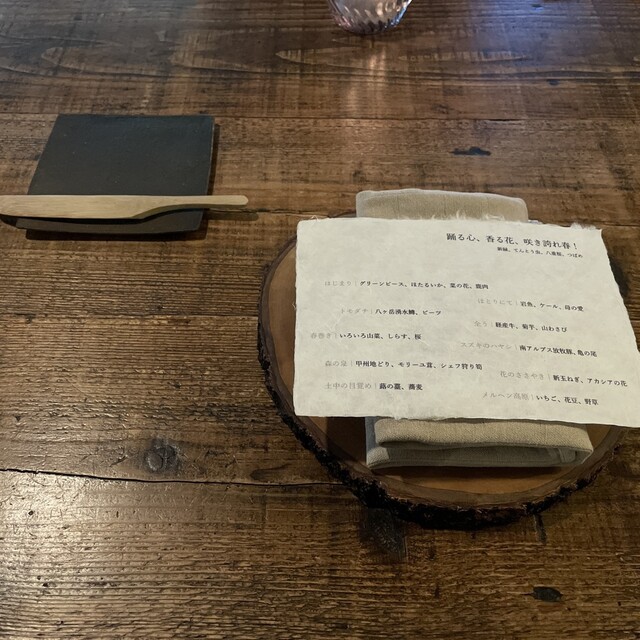 踊る心、香る花、咲き誇れ春！
新緑、てんとう虫、八重桜、つばめ
はじまり｜グリーンピース、ほたるいか、菜の花、鹿肉
ほとりにて｜岩魚、ケール、苺の愛
トモダチ｜八ヶ岳湧水鱒、ビーツ
走り｜経産牛、菊芋、山わさび
春巻き｜いろいろ山菜、しらす、桜
スズキのハヤシ｜南アルプス放牧豚、亀の尾
森の宴｜甲州地どり、モリーユ茸、シェフ狩り筍
花のささやき｜新玉ねぎ、アカシアの花
土中の目覚め｜蕗の薹、蕎麦
メルヘン高原｜いちご、花豆、野草